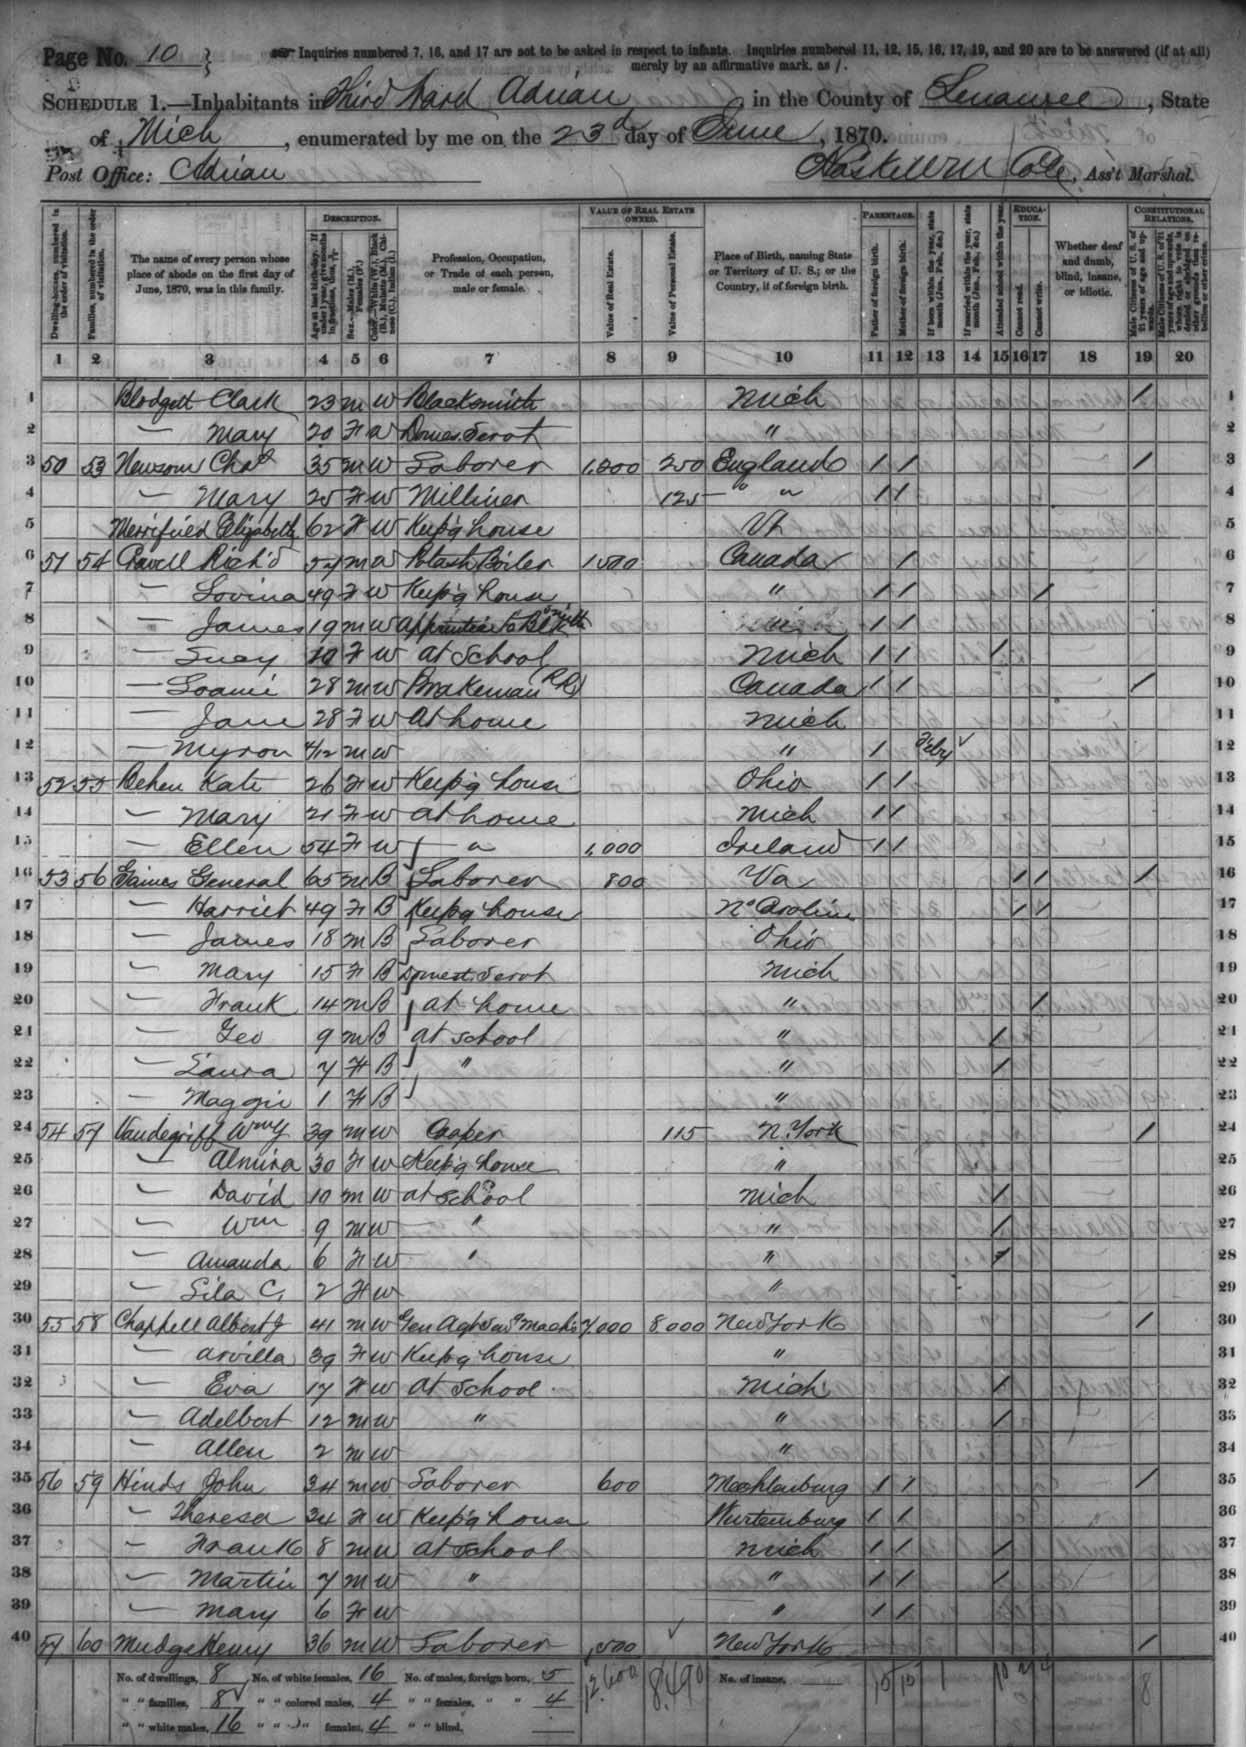 Page No. 10 } Inquiries numbered 7, 16, and 17 are not to be asked in respect to infants. Inquiries numbered 11, 12, 15, 16, 17, 19, and 20 are to be answered (if at all)
merely by an affirmative mark, as /.
SCHEDULE 1.—Inhabitants in Third Ward Adrian, in the County of Lenawee, State
of Mich, enumerated by me on the 23d day of June, 1870.
Post Office: Adrian Cole, Ass't Marshal.
Dwelling-houses, numbered in the order of visitation.
Families, numbered in the order of visitation.
The name of every person whose place of abode on the first day of June, 1870, was in this family.
DESCRIPTION.
Age at last birth-day. If under 1 year, give months in fractions, thus, 3/12
Sex.—Males (M.), Females (F.)
Color.—White (W.), Black (B.), Mulatto (M.), Chinese (C.), Indian (I.)
Profession, Occupation, or Trade of each person, male or female.
VALUE OF REAL ESTATE OWNED.
Value of Real Estate.
Value of Personal Estate.
Place of Birth, naming State or Territory of U. S.; or the Country, if of foreign birth.
PARENTAGE.
Father of foreign birth.
Mother of foreign birth.
If born within the year, state month (Jan., Feb., &c.)
If married within the year, state month (Jan., Feb., &c.)
Attended school within the year.
EDUCATION.
Cannot read.
Cannot write.
Whether deaf and dumb, blind, insane, or idiotic.
CONSTITUTIONAL RELATIONS.
Male Citizens of U. S. of 21 years of age and upwards.
Male Citizens of U. S. of 21 years of age and upwards, whose right to vote is denied or abridged on other grounds than rebellion or other crime.
1 2 3 4 5 6 7 8 9 10 11 12 13 14 15 16 17 18 19 20
1 Blodgett Clark 23 m W Blacksmith Mich / 1
2 — Mary 20 F W Domes. Servt " 2
3 50 53 Newsom Chas 35 m W Laborer 1,200 250 England / / / 3
4 — Mary 25 F W Milliner 125 " " / / 4
5 Merrifield Elizabeth 62 F W Keep'g house Vt 5
6 51 54 Rich'd 54 m W Potash Boiler 1500 Canada / 6
7 — Lovina 49 F W Keep'g house " / / / 7
8 — James 19 m W Apprentice to Blksmith " / / 8
9 — Lucy 10 F W at School Mich / / / 9
10 — Loami 28 m W Brakeman RR Canada / / / 10
11 — Jane 28 F W at home Mich 11
12 — Myron 4/12 m W " / Feby 12
13 52 55 Behen Kate 26 F W Keep'g house Ohio / / 13
14 — Mary 21 F W at home Mich / / 14
15 — Ellen 54 F W — " 1,000 Ireland / / 15
16 53 56 Gaines General 65 m B Laborer 800 Va / / / 16
17 — Harriet 49 F B Keep'g house No Carolina / / 17
18 — James 18 m B Laborer Ohio 18
19 — Mary 15 F B Domest. Servt Mich 19
20 — Frank 14 m B at home " / 20
21 — Geo 9 m B at school " / 21
22 — Laura 7 F B " " / 22
23 — Maggie 1 F B " 23
24 54 57 Vandegriff Wm 39 m W Cooper 115 N. York / 24
25 — Almira 30 F W Keep'g house " 25
26 — David 10 m W at School Mich / 26
27 — Wm 9 m W " " / 27
28 — Amanda 6 F W " " / 28
29 — Lila C. 2 F W " 29
30 55 58 Chappell Albert J 41 m W Gen Agt Machs 7,000 8000 New York / 30
31 — Arvilla 39 F W Keep'g house " 31
32 — Eva 17 F W at School Mich / 32
33 — Adelbert 12 m W " " / 33
34 — Allen 2 m W " 34
35 56 59 Hinds John 34 m W Laborer 600 Mecklenburg / / / 35
36 — Theresa 34 F W Keep'g house Wurtemburg / / 36
37 — Frank 8 m W at School Mich / / / 37
38 — Martin 7 m W " " / / / 38
39 — Mary 6 F W " / / 39
40 57 60 Mudge Henry 36 m W Laborer 500 New York / 40
No. of dwellings, 8 No. of white females, 16 No. of males, foreign born, 5 12,600 8,490 No. of insane, 15 15 1 10 8
" " families, 8 " " colored males, 4 " " females, " " 4
" " white males, 16 " " " females, 4 " " blind,